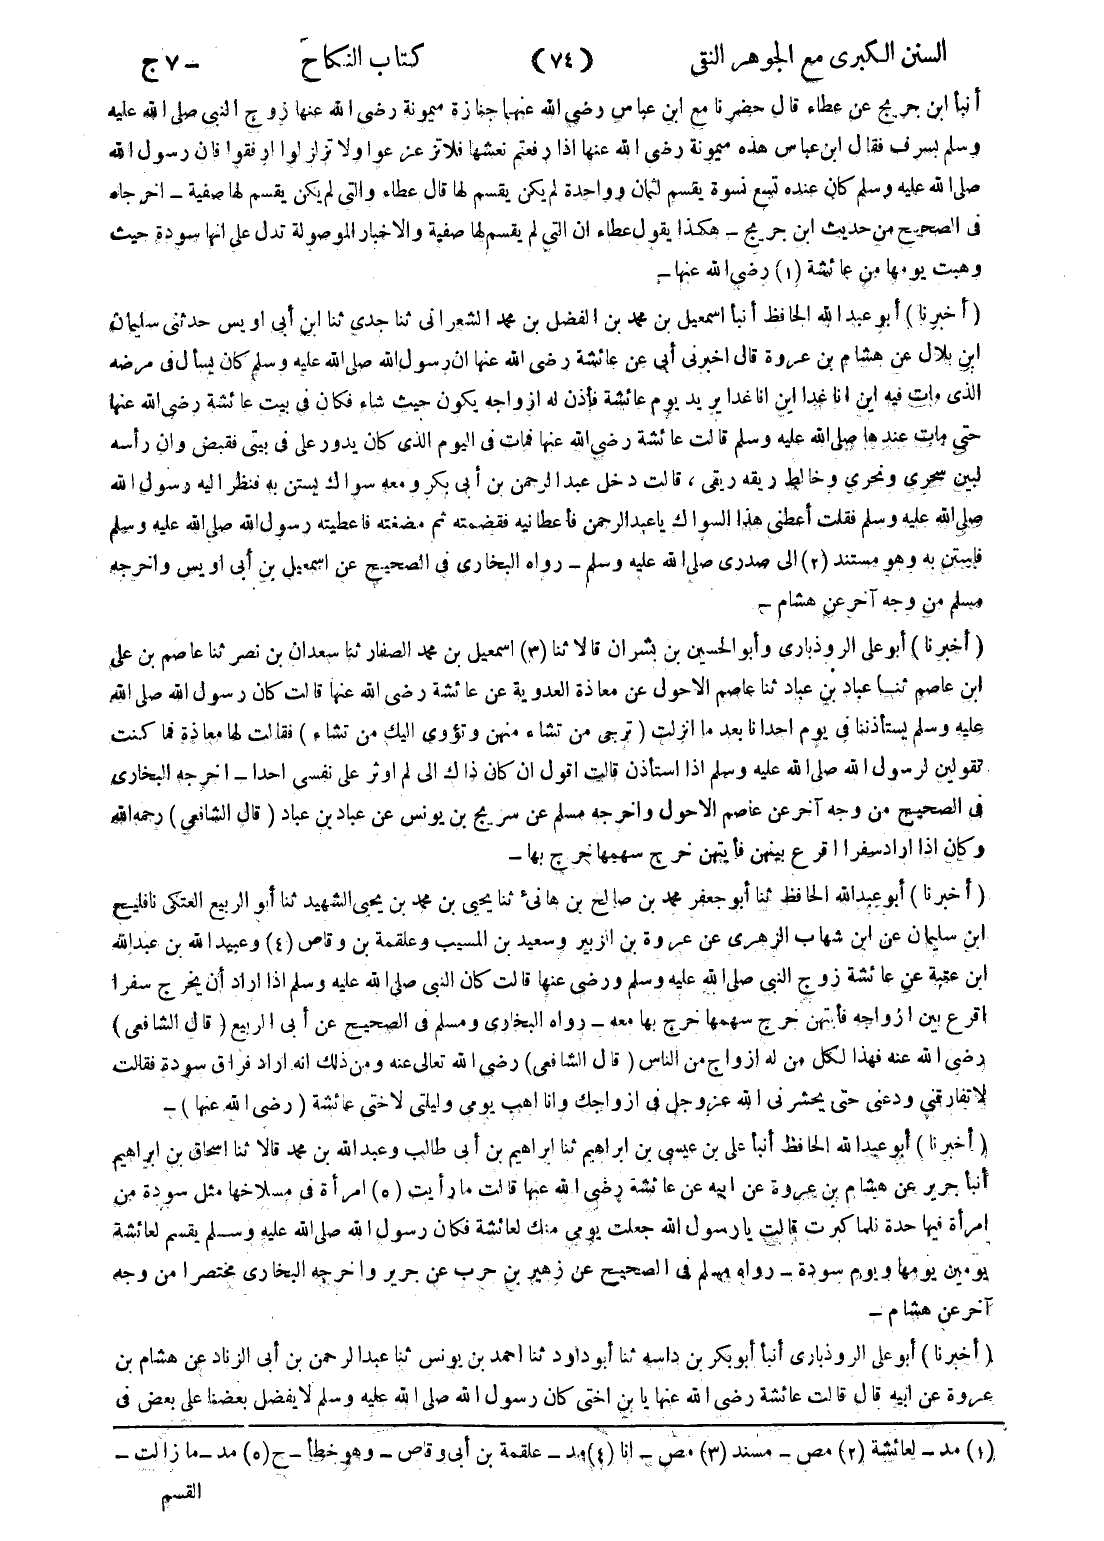 السنن الكبرى مع الجوهر النقى (٧٤) كتاب النكاح ج-٧
أنبأ ابن جريج عن عطاء قال حضرنا مع ابن عباس رضى الله عنهما جنازة ميمونة رضى الله عنها زوج النبى صلى الله عليه
وسلم بسرف فقال ابن عباس هذه ميمونة رضى الله عنها اذا رفعتم نعشها فلا تزعزعوا ولا تزلزلوا ارفقوا فان رسول الله
صلى الله عليه وسلم كان عنده تسع نسوة يقسم لثمان وواحدة لم يكن يقسم لها قال عطاء والتى لم يكن يقسم لها صفية - اخرجاه
فى الصحيح من حديث ابن جريج - هكذا يقول عطاء ان التى لم يقسم لها صفية والاخبار الموصولة تدل على انها سودة حيث
وهبت يومها من عائشة (١) رضى الله عنها -
( أخبرنا ) أبو عبد الله الحافظ أنبأ اسمعيل بن محمد بن الفضل بن محمد الشعرانى ثنا جدى ثنا ابن أبى اويس حدثنى سليمان
ابن بلال عن هشام بن عروة قال اخبرنى أبى عن عائشة رضى الله عنها ان رسول الله صلى الله عليه وسلم كان يسأل فى مرضه
الذى مات فيه اين انا غدا اين انا غدا يريد يوم عائشة فأذن له ازواجه يكون حيث شاء فكان فى بيت عائشة رضى الله عنها
حتى مات عندها صلى الله عليه وسلم قالت عائشة رضى الله عنها فمات فى اليوم الذى كان يدور على فى بيتى فقبض وان رأسه
لبين سحرى ونحرى وخالط ريقه ريقى ، قالت دخل عبد الرحمن بن أبى بكر ومعه سواك يستن به فنظر اليه رسول الله
صلى الله عليه وسلم فقلت أعطنى هذا السواك يا عبد الرحمن فأعطانيه فقضمته ثم مضغته فاعطيته رسول الله صلى الله عليه وسلم
فاستن به وهو مستند (٢) الى صدرى صلى الله عليه وسلم - رواه البخارى فى الصحيح عن اسمعيل بن أبى اويس واخرجه
مسلم من وجه آخر عن هشام -
( أخبرنا ) أبو على الروذبارى وأبو الحسين بن بشران قالا ثنا (٣) اسمعيل بن محمد الصفار ثنا سعدان بن نصر ثنا عاصم بن على
ابن عاصم ثنا عباد بن عباد ثنا عاصم الاحول عن معاذة العدوية عن عائشة رضى الله عنها قالت كان رسول الله صلى الله
عليه وسلم يستأذننا فى يوم احدانا بعد ما انزلت ( ترجى من تشاء منهن وتؤوى اليك من تشاء ) فقالت لها معاذة فما كنت
تقولين لرسول الله صلى الله عليه وسلم اذا استأذن قالت اقول ان كان ذاك الى لم اوثر على نفسى احدا - اخرجه البخارى
فى الصحيح من وجه آخر عن عاصم الاحول واخرجه مسلم عن سريج بن يونس عن عباد بن عباد ( قال الشافعى ) رحمه الله
وكان اذا اراد سفرا اقرع بينهن فأيتهن خرج سهمها خرج بها -
( أخبرنا ) أبو عبد الله الحافظ ثنا أبو جعفر محمد بن صالح بن هانئ ثنا يحيى بن محمد بن يحيى الشهيد ثنا أبو الربيع العتكى نا فليح
ابن سليمان عن ابن شهاب الزهرى عن عروة بن الزبير وسعيد بن المسيب وعلقمة بن وقاص (٤) وعبيد الله بن عبد الله
ابن عتبة عن عائشة زوج النبى صلى الله عليه وسلم ورضى عنها قالت كان النبى صلى الله عليه وسلم اذا اراد أن يخرج سفرا
اقرع بين ازواجه فأيتهن خرج سهمها خرج بها معه - رواه البخارى ومسلم فى الصحيح عن أبى الربيع ( قال الشافعى )
رضى الله عنه فهذا لكل من له ازواج من الناس ( قال الشافعى ) رضى الله تعالى عنه ومن ذلك انه اراد فراق سودة فقالت
لا تفارقنى ودعنى حتى يحشرنى الله عز وجل فى ازواجك وانا اهب يومى وليلتى لاختى عائشة ( رضى الله عنها ) -
( أخبرنا ) أبو عبد الله الحافظ أنبأ على بن عيسى بن ابراهيم ثنا ابراهيم بن أبى طالب وعبد الله بن محمد قالا ثنا اسحاق بن ابراهيم
أنبأ جرير عن هشام بن عروة عن ابيه عن عائشة رضى الله عنها قالت ما رأيت (٥) امرأة فى مسلاخها مثل سودة من
امرأة فيها حدة فلما كبرت قالت يا رسول الله جعلت يومى منك لعائشة فكان رسول الله صلى الله عليه وسلم يقسم لعائشة
يومين يومها ويوم سودة - رواه مسلم فى الصحيح عن زهير بن حرب عن جرير واخرجه البخارى مختصرا من وجه
آخر عن هشام -
( أخبرنا ) أبو على الروذبارى أنبأ أبو بكر بن داسه ثنا أبو داود ثنا احمد بن يونس ثنا عبد الرحمن بن أبى الزناد عن هشام بن
عروة عن ابيه قال قالت عائشة رضى الله عنها يا بن اختى كان رسول الله صلى الله عليه وسلم لا يفضل بعضنا على بعض فى
(١) مد - لعائشة (٢) مص - مسند (٣) مص - انا (٤) مد - علقمة بن أبى وقاص - وهو خطأ - ح (٥) مد - ما زالت -
القسم